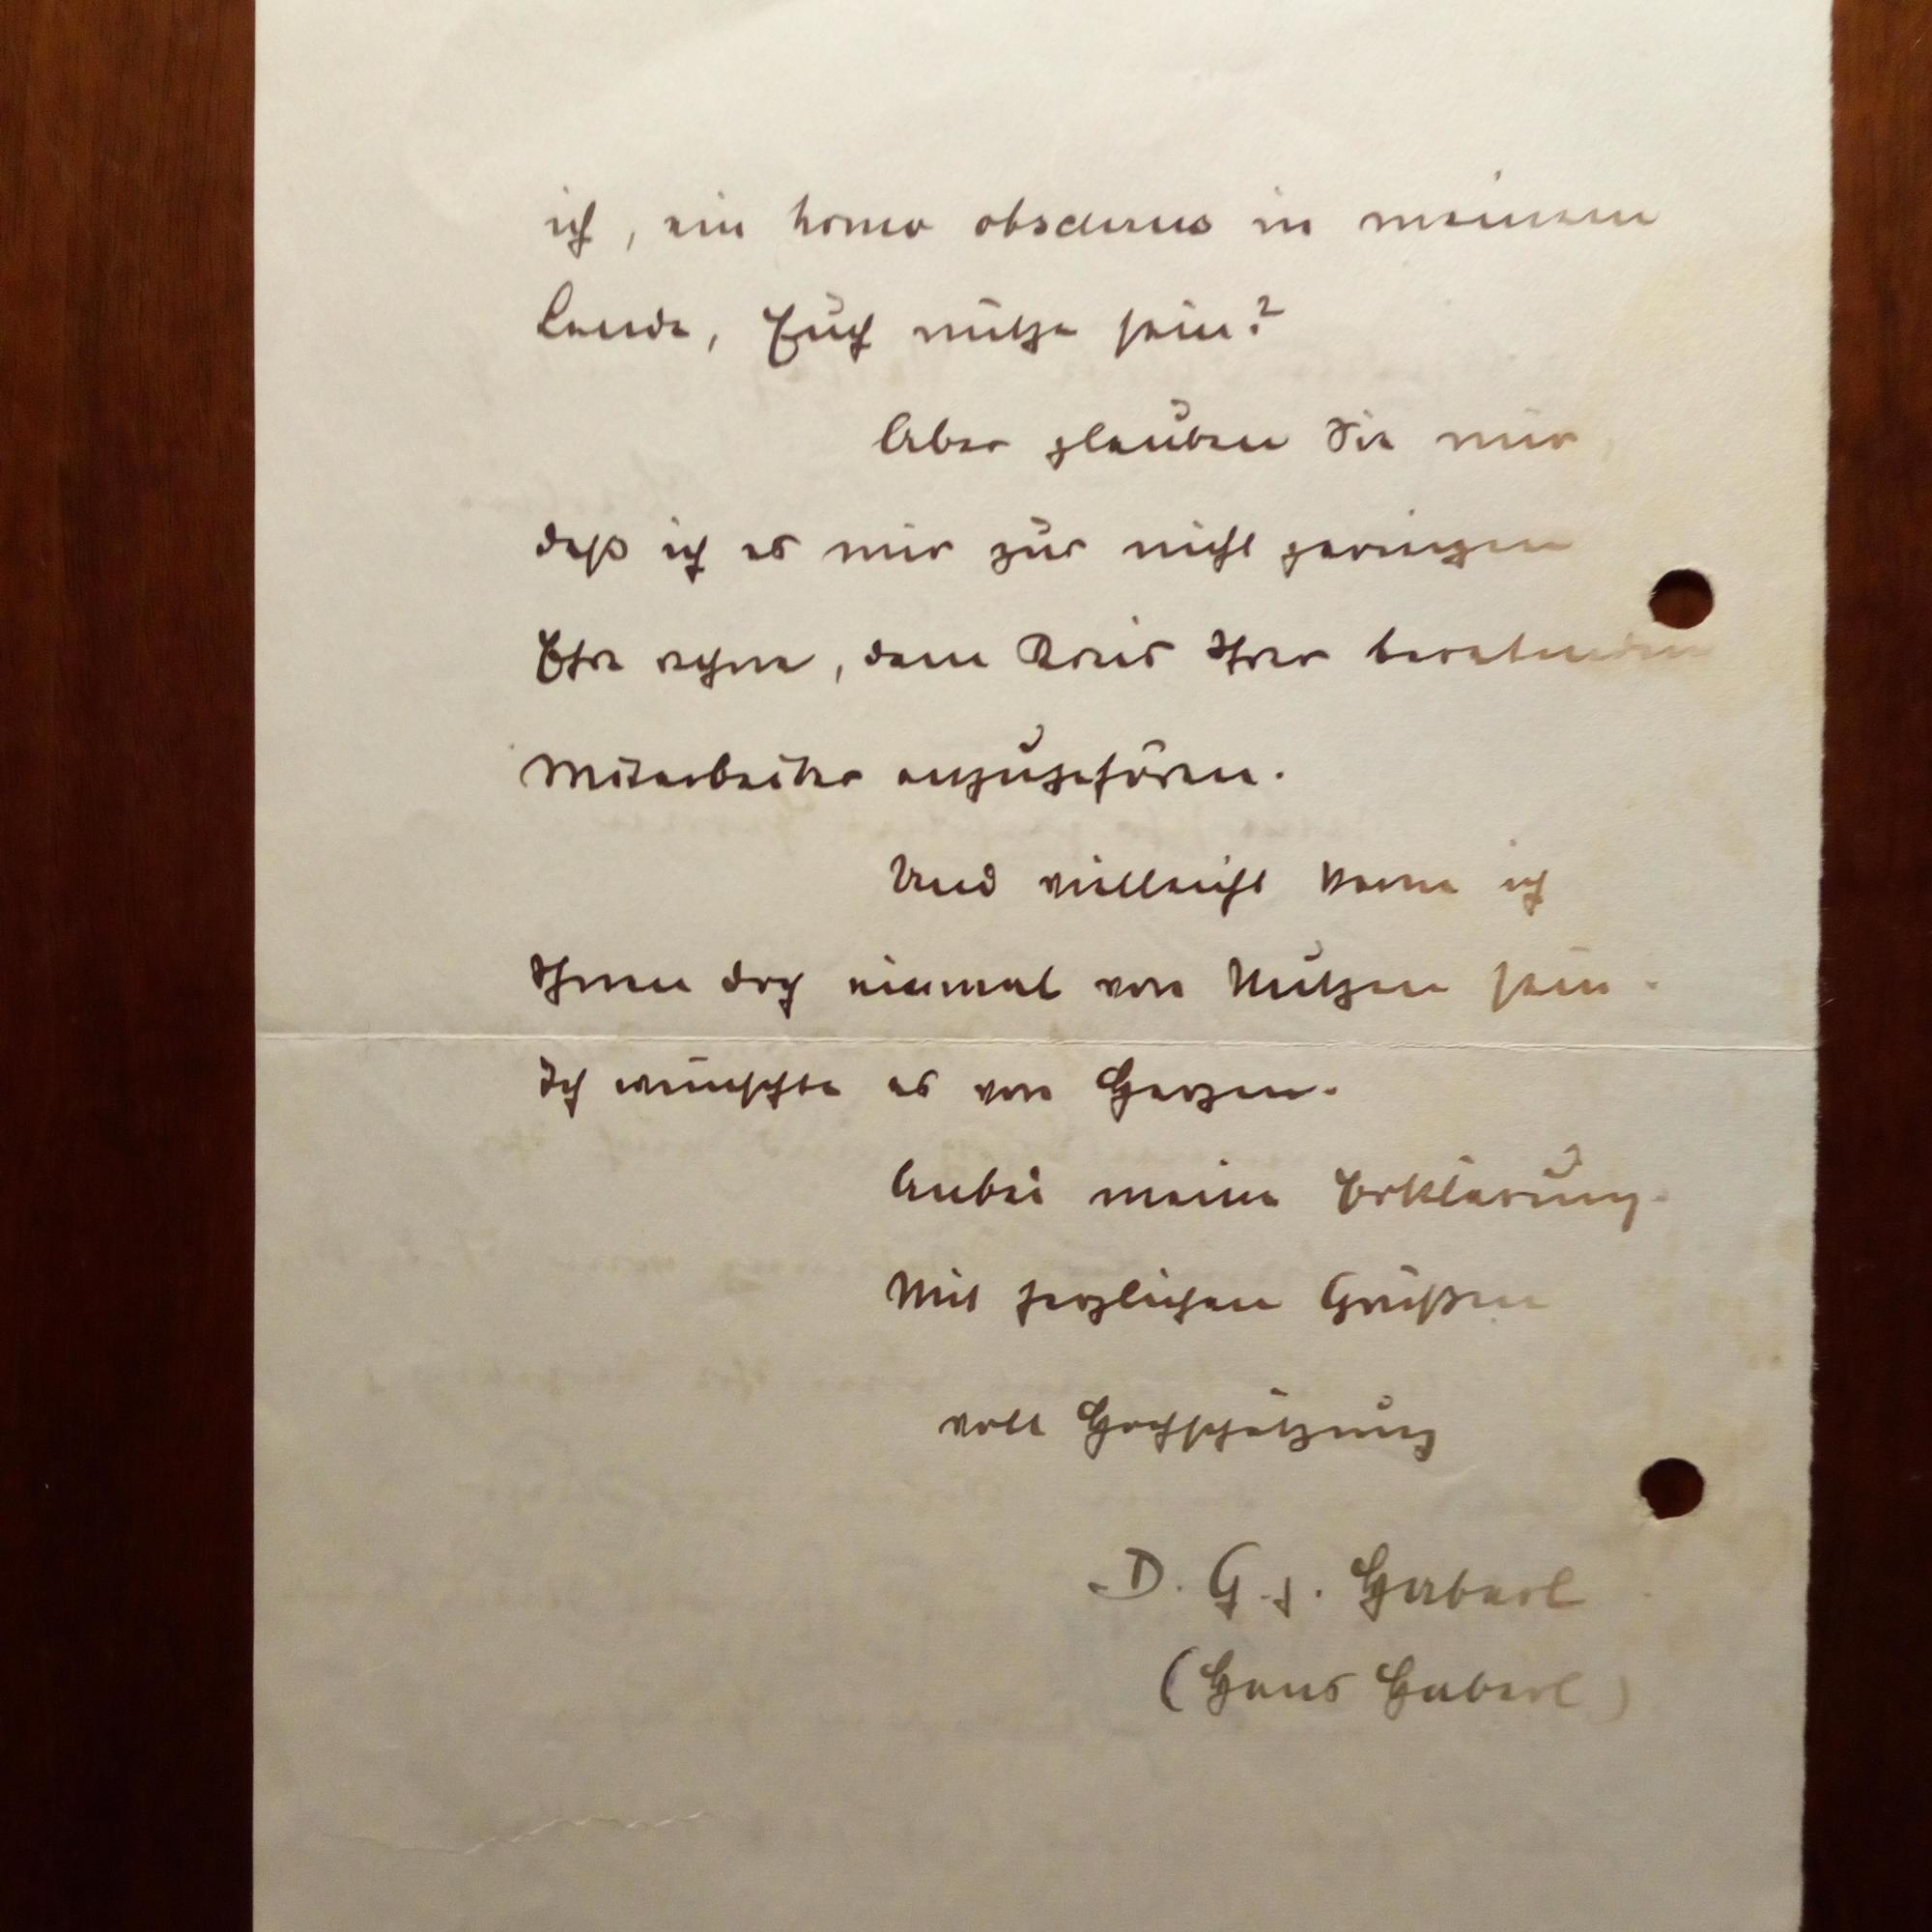 ich, ein homo obscurus in meinem
Lande, Euch nütze sein?
Aber glauben Sie mir,
daß ich es mir zur nicht geringen
Ehre rechne, dem Kreis Ihrer beratenden
Mitarbeiter anzugehören.
Und vielleicht kann ich
Ihnen doch einmal von Nutzen sein.
Ich wünschte es von Herzen.
Anbei meine Erklärung.
Mit herzlichen Grüßen
voll Hochschätzung
D. G. J. Haberl
(Hans Haberl)